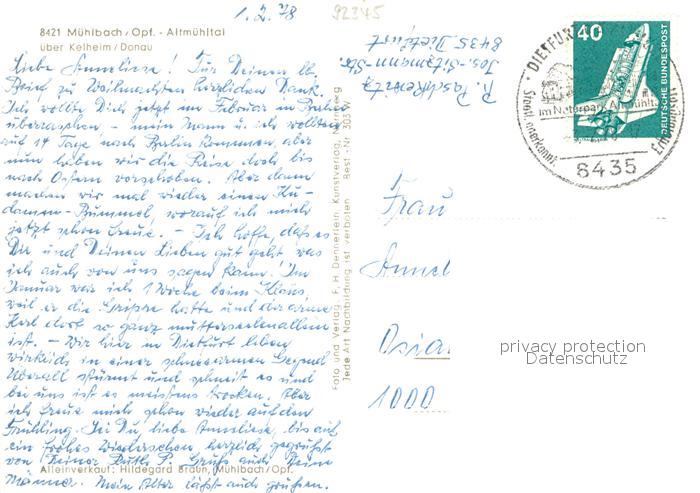 1.2.78
92345
8421 Mühlbach/Opf. - Altmühltal
über Kelheim/Donau
Liebe Anneliese! Für Deinen lb.
Brief zu Weihnachten herzlichen Dank.
Ich wollte Dich jetzt im Februar in Berlin
überraschen, – mein Mann u. ich wollten
auf 14 Tage nach Berlin kommen, aber
nun haben wir die Reise doch bis
nach Ostern verschoben. Aber dann
machen wir mal wieder einen Ku-
damm-Bummel, worauf ich mich
jetzt schon freue. – Ich hoffe, daß es
Dir und Deinen Lieben gut geht, was
ich auch von uns sagen kann. Im
Januar war ich 1 Woche beim Klaus,
weil er die Grippe hatte und der arme
Kerl dort so ganz mutterseelenallein
ist. – Wir hier in Dietfurt leben
wirklich in einer schneearmen Gegend.
Überall stürmt und schneit es und
bei uns ist es meistens trocken. Aber
ich freue mich schon wieder auf den
Frühling. Sei Du, liebe Anneliese, bis auf
ein frohes Wiedersehen, herzlich gegrüßt
von Deiner Ruth P. Gruß auch Deine
Männer. Mein Alter läßt auch grüßen.
Alleinverkauf: Hildegard Braun, Mühlbach/Opf.
Foto und Verlag: F. H. Dennerlein, Kunstverlag, Nürnberg
Jede Art Nachbildung ist verboten Best.-Nr. 303 W
R. Paschkewitz
Jos.-Sitzmann-Str.
8435 Dietfurt
40
DEUTSCHE BUNDESPOST
DIETFURT
im Naturpark Altmühltal
Staatl. anerkannter Erholungsort
8435
Frau
Annel
Osia
1000
privacy protection
Datenschutz